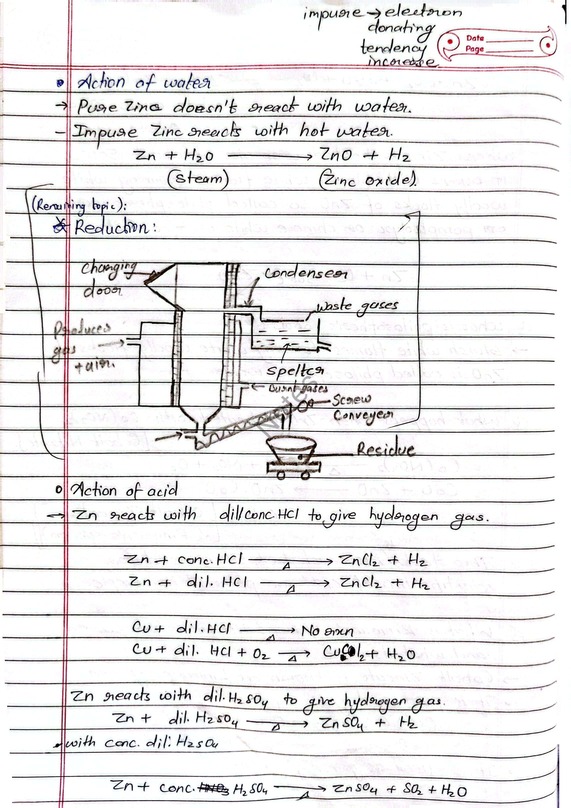 impure → electron
donating
tendency
increase
Date
Page
• Action of water
→ Pure Zinc doesn't react with water.
– Impure Zinc reacts with hot water.
Zn + H₂O ⟶ ZnO + H₂
(steam) (Zinc oxide).
(Remaining topic):
* Reduction:
Charging
door
Condenser
waste gases
Producer
gas
+ air.
spelter
Burnt gases
Screw
Conveyer
Residue
Notes
• Action of acid
→ Zn reacts with dil/conc. HCl to give hydrogen gas.
Zn + conc. HCl —Δ→ ZnCl₂ + H₂
Zn + dil. HCl —Δ→ ZnCl₂ + H₂
Cu + dil. HCl —Δ→ No rxn
Cu + dil. HCl + O₂ —Δ→ CuCl₂ + H₂O
Zn reacts with dil. H₂SO₄ to give hydrogen gas.
Zn + dil. H₂SO₄ —Δ→ ZnSO₄ + H₂
• with conc. dil: H₂SO₄
Zn + conc. H₂SO₄ —Δ→ ZnSO₄ + SO₂ + H₂O